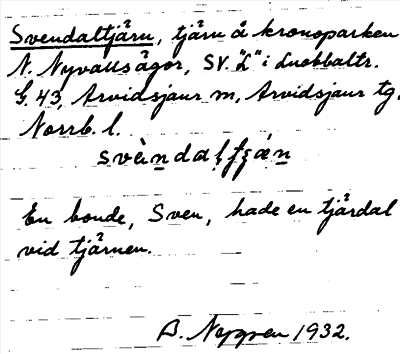 Svendaltjärn, tjärn å kronoparken
N. Nyvallsägor, SV. "L" i Luobbaltr.
G. 43, Arvidsjaur sn, Arvidsjaur tg.
Norrb. l.
En bonde, Sven, hade en tjärdal
vid tjärnen.
B. 1932.